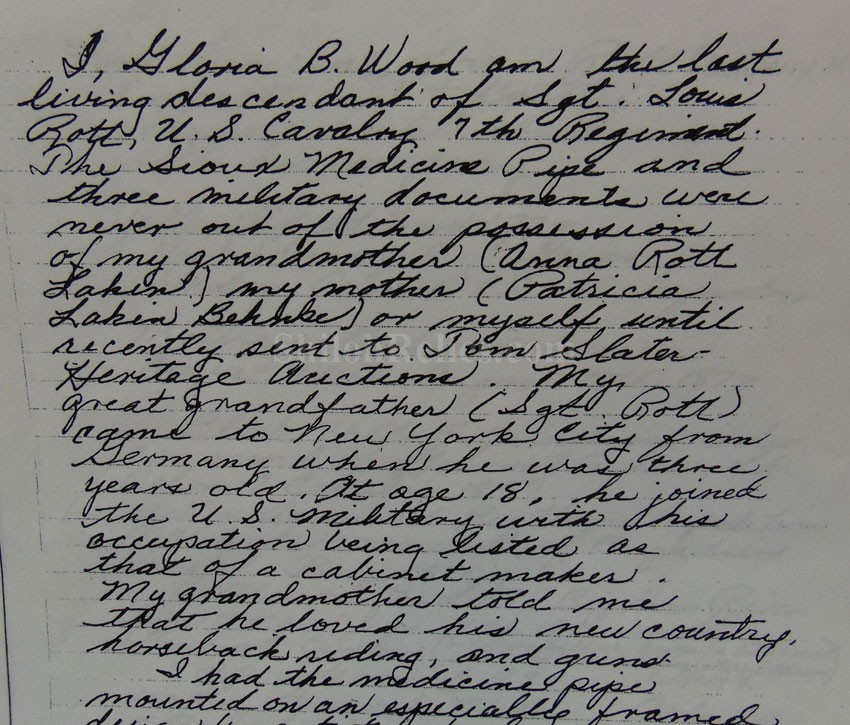 I, Gloria B. Wood am the last
living descendant of Sgt. Louis
Rott, U. S. Cavalry 7th Regiment.
The Sioux Medicine Pipe and
three military documents were
never out of the possession
of my grandmother (Anna Rott
Lakin) my mother (Patricia
Lakin Behnke) or myself, until
recently sent to Tom Slater-
Heritage Auctions. My
great grandfather (Sgt. Rott)
came to New York City from
Germany when he was three
years old. At age 18, he joined
the U. S. Military with his
occupation being listed as
that of a cabinet maker.
My grandmother told me
that he loved his new country,
horseback riding, and guns.
I had the medicine pipe
mounted on an especially framed